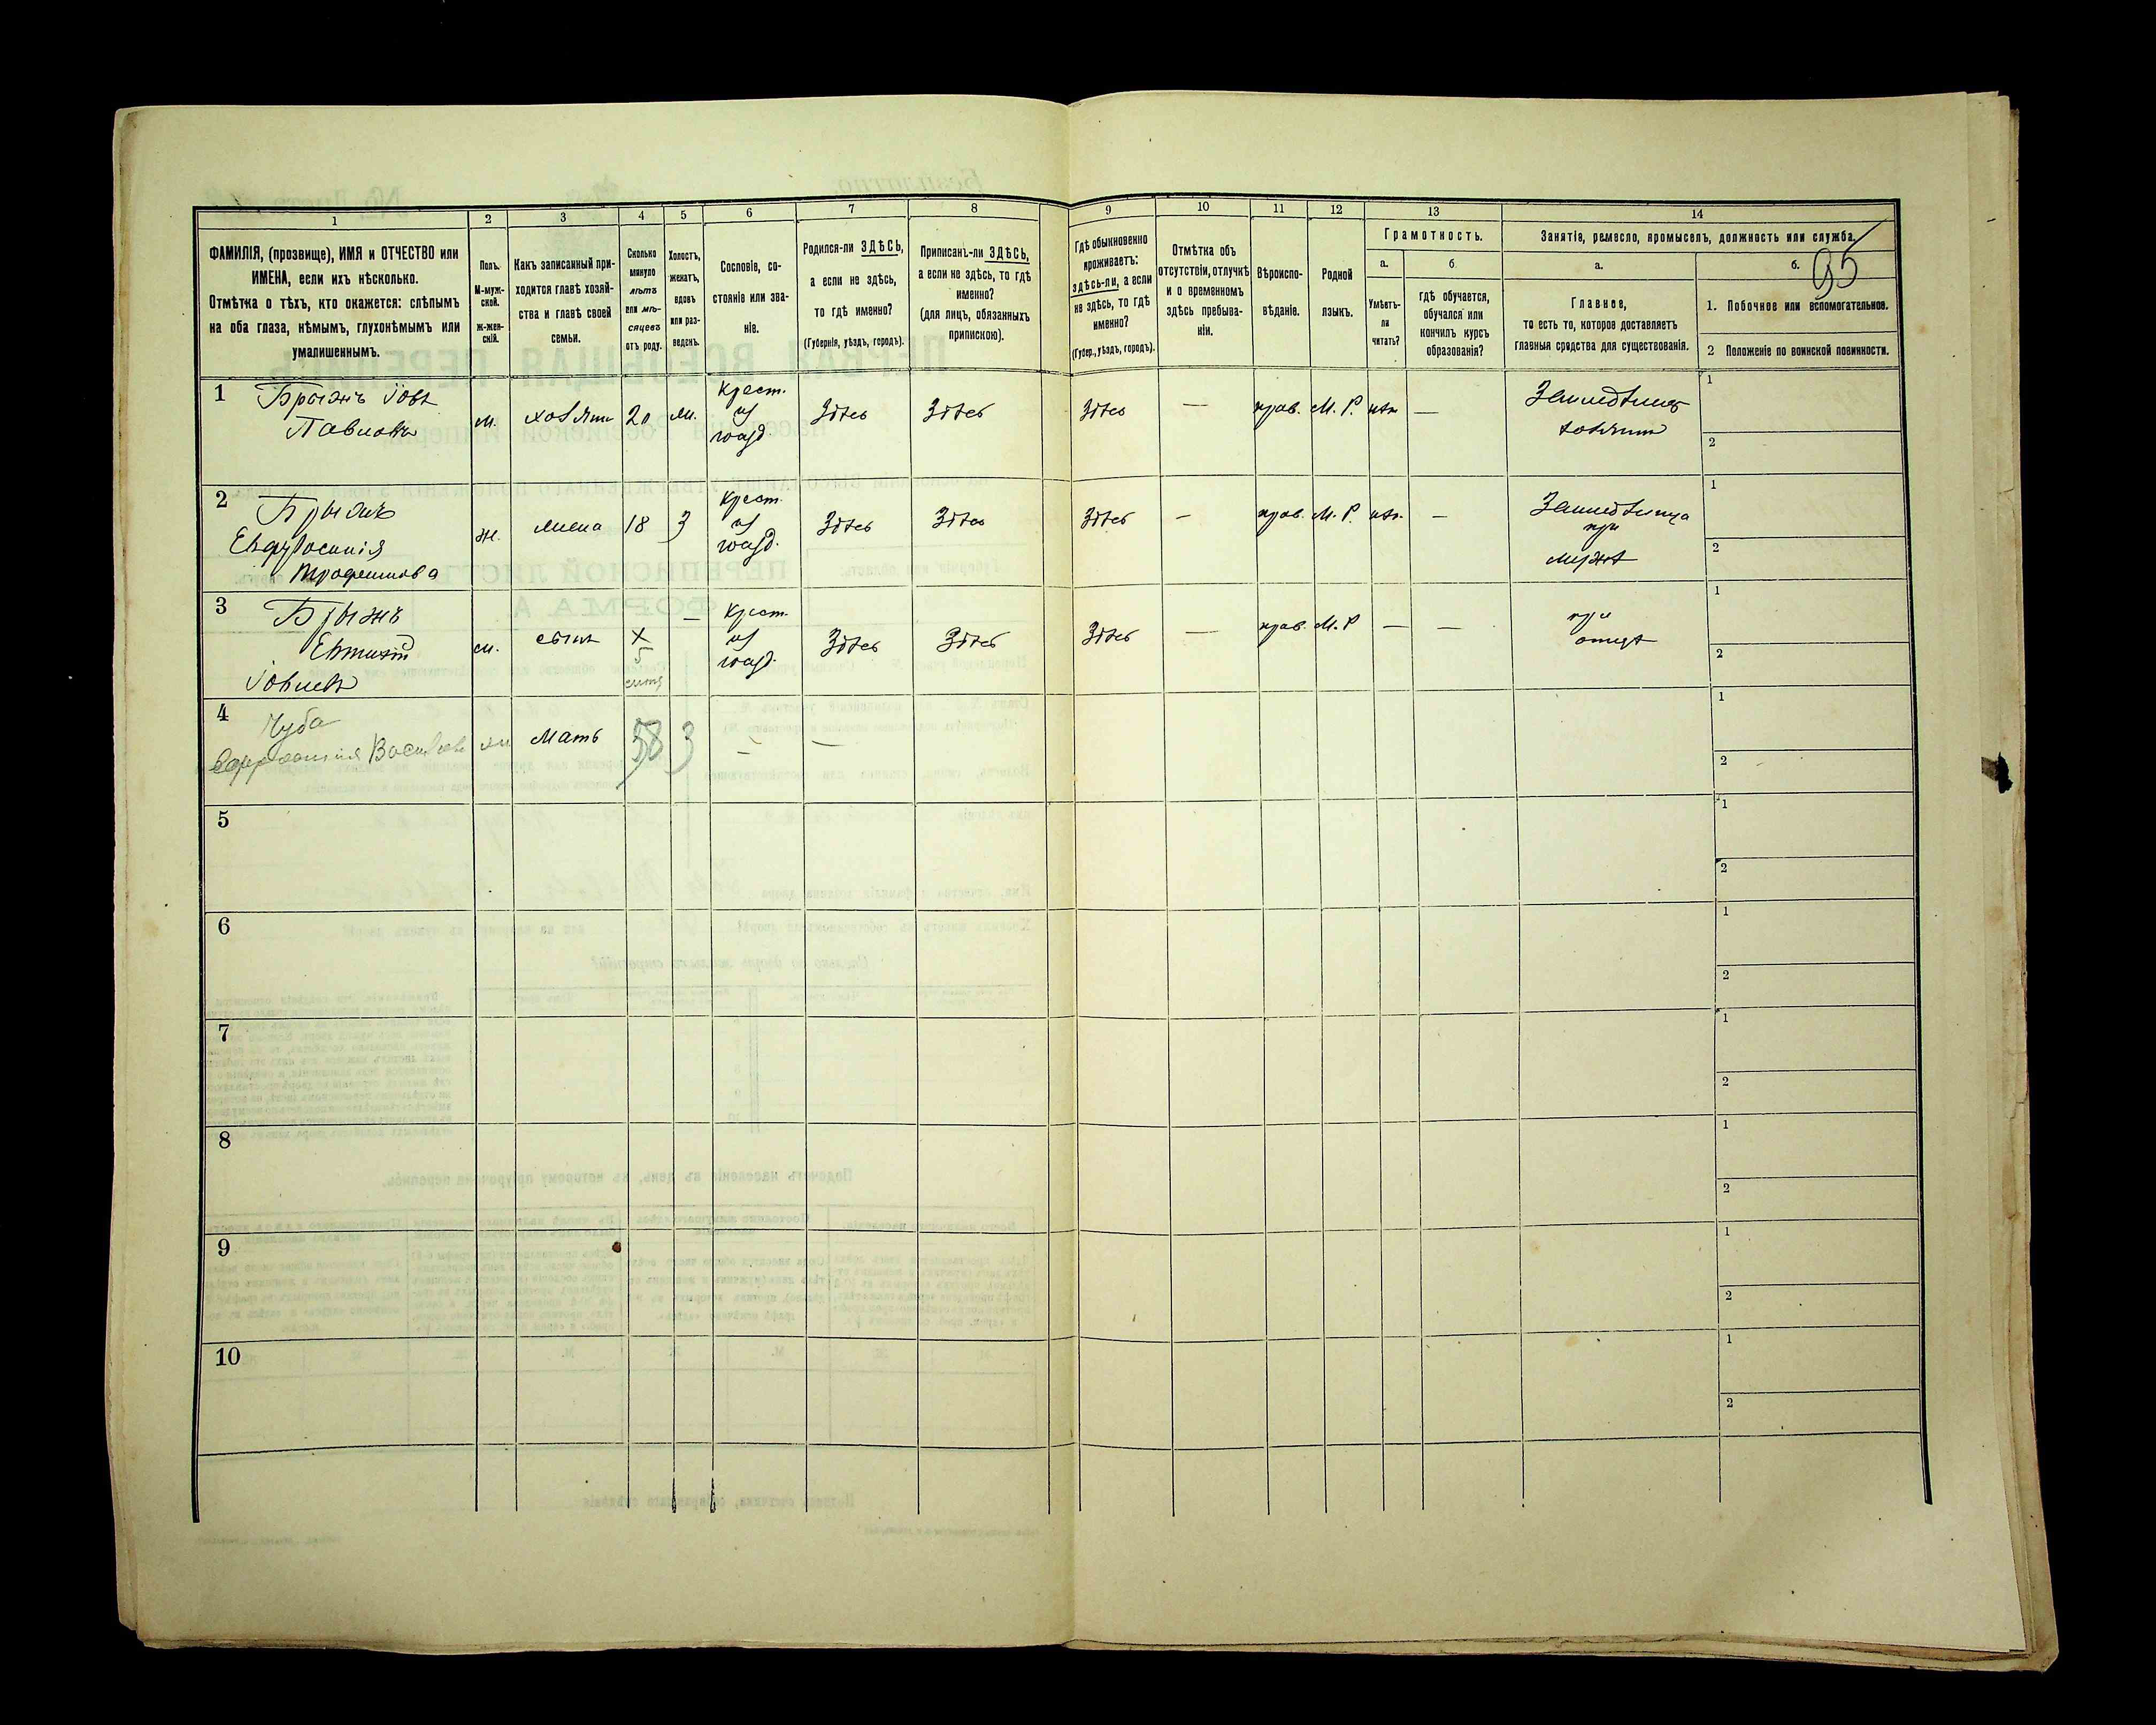 95
1 2 3 4 5 6 7 8 9 10 11 12 13 14
ФАМИЛІЯ, (прозвище), ИМЯ и ОТЧЕСТВО или
ИМЕНА, если ихъ нѣсколько.
Отмѣтка о тѣхъ, кто окажется: слѣпымъ
на оба глаза, нѣмымъ, глухонѣмымъ или
умалишеннымъ.
Полъ.
М-муж-
ской.
ж-жен-
скій.
Какъ записанный при-
ходится главѣ хозяй-
ства и главѣ своей
семьи.
Сколько
минуло
лѣтъ
или мѣ-
сяцевъ
отъ роду.
Холостъ,
женатъ,
вдовъ
или раз-
веденъ.
Сословіе, со-
стояніе или зва-
ніе.
Родился-ли ЗДѢСЬ,
а если не здѣсь,
то гдѣ именно?
(Губернія, уѣздъ, городъ).
Приписанъ-ли ЗДѢСЬ,
а если не здѣсь, то гдѣ
именно?
(для лицъ, обязанныхъ
припискою).
Гдѣ обыкновенно
проживаетъ:
здѣсь-ли, а если
не здѣсь, то гдѣ
именно?
(Губер., уѣздъ, городъ).
Отмѣтка объ
отсутствіи, отлучкѣ
и о временномъ
здѣсь пребыва-
ніи.
Вѣроиспо-
вѣданіе.
Родной
языкъ.
Грамотность.
а.
Умѣетъ-
ли
читать?
б
гдѣ обучается,
обучался или
кончилъ курсъ
образованія?
Занятія, ремесло, промыселъ, должность или служба.
а.
Главное,
то есть то, которое доставляетъ
главныя средства для существованія.
б.
1. Побочное или вспомогательное.
2 Положеніе по воинской повинности.
1
Брыжъ Іовъ
Павловъ
м.
хозяинъ
20
ж.
Крест.
из
Здѣсь
Здѣсь
Здѣсь
—
прав.
М. Р.
нѣт
—
Земледѣлецъ
хозяинъ
1
2
2
Брыжъ
Евфросинія
Трофимова
ж.
жена
18
З
Крест.
из
Здѣсь
Здѣсь
Здѣсь
—
прав.
М. Р.
нѣт.
—
Земледѣлица
при
мужѣ
1
2
3
Брыжъ
Евтихій
Іовлевъ
м.
сынъ
—
Крест.
из
Здѣсь
Здѣсь
Здѣсь
—
прав.
М. Р
—
—
при
отцѣ
1
2
4
Чуба
Евфросинія
Мать
58
З
—
—
1
2
5
1
2
6
1
2
7
1
2
8
1
2
9
1
2
10
1
2